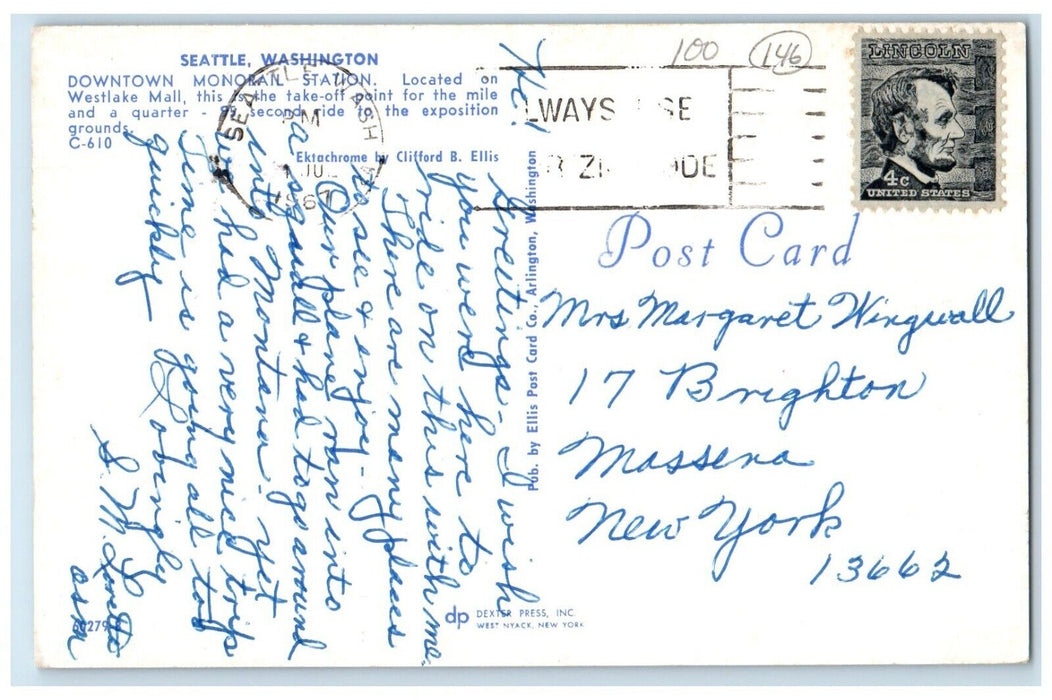 SEATTLE, WASHINGTON
DOWNTOWN MONORAIL STATION. Located on
Westlake Mall, this is the take-off point for the mile
and a quarter - 95 second ride to the exposition
grounds.
C-610
Ektachrome by Clifford B. Ellis
SEATTLE WASH
PM
1967
ALWAYS USE
ZIP CODE
100
146
LINCOLN
4c
UNITED STATES
Pub. by Ellis Post Card Co., Arlington, Washington
Post Card
Hi!
Greetings - I wish
you were here to
ride on this with me.
There are many places
to see & enjoy -
Our plane ran into
a squall & had to go around
into Montana - yet
we had a very nice trip
Time is going all too
quickly -
Lovingly
S. M. Loretto
osm
Mrs Margaret Wingwall
17 Brighton
Massena
New York
13662
dp DEXTER PRESS, INC.
WEST NYACK, NEW YORK